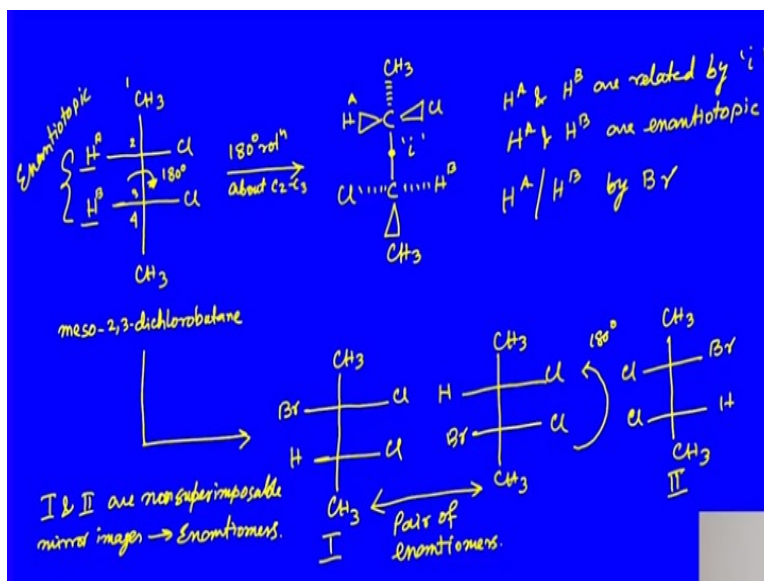 Enantiotopic
1
CH3
HA 2 Cl
180°
HB 3 Cl
4
CH3
meso-2,3-dichlorobutane
180° rotn
about C2-C3
CH3
A
H C Cl
'i'
Cl C HB
CH3
HA & HB are related by 'i'
HA & HB are enantiotopic
HA/HB by Br
CH3
Br Cl
H Cl
CH3
I
CH3
H Cl
Br Cl
CH3
180°
CH3
Cl Br
Cl H
CH3
II
Pair of
enantiomers.
I & II are nonsuperimposable
mirror images → Enantiomers.